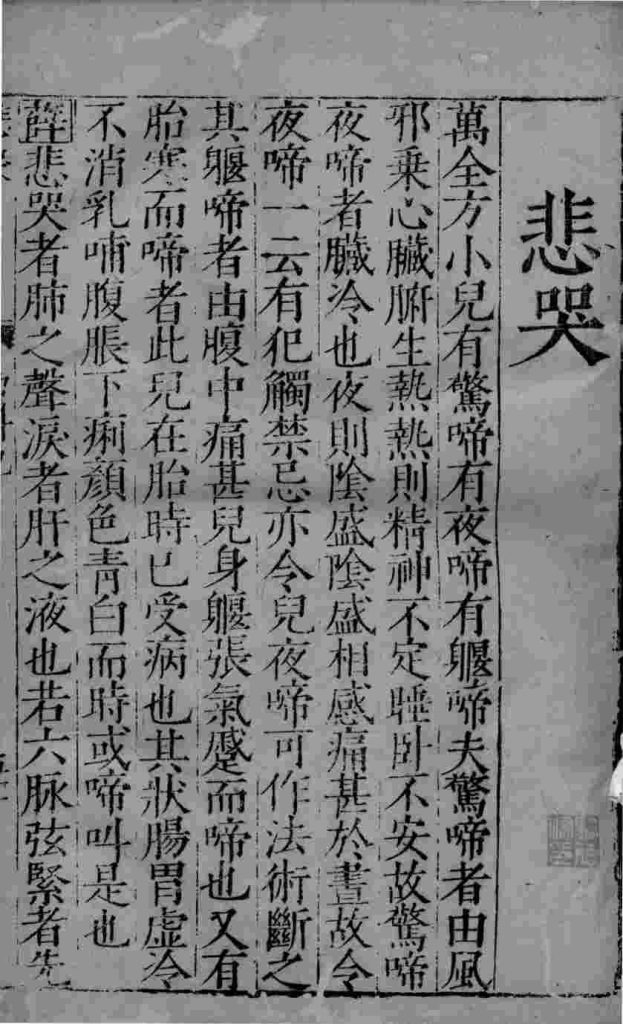 悲哭
萬全方小兒有驚啼有夜啼有軀啼夫驚啼者由風
邪乗心臟腑生熱熱則精神不定睡卧不安故驚啼
夜啼者臟冷也夜則陰盛陰盛相感痛甚於晝故令
夜啼一云有犯觸禁忌亦令兒夜啼可作法術斷之
其軀啼者由腹中痛甚兒身軀張氣蹙而啼也又有
胎寒而啼者此兒在胎時已受病也其狀腸胃虛冷
不消乳哺腹脹下痢顏色青白而時或啼叫是也
薛悲哭者肺之聲淚者肝之液也若六脉弦緊者先